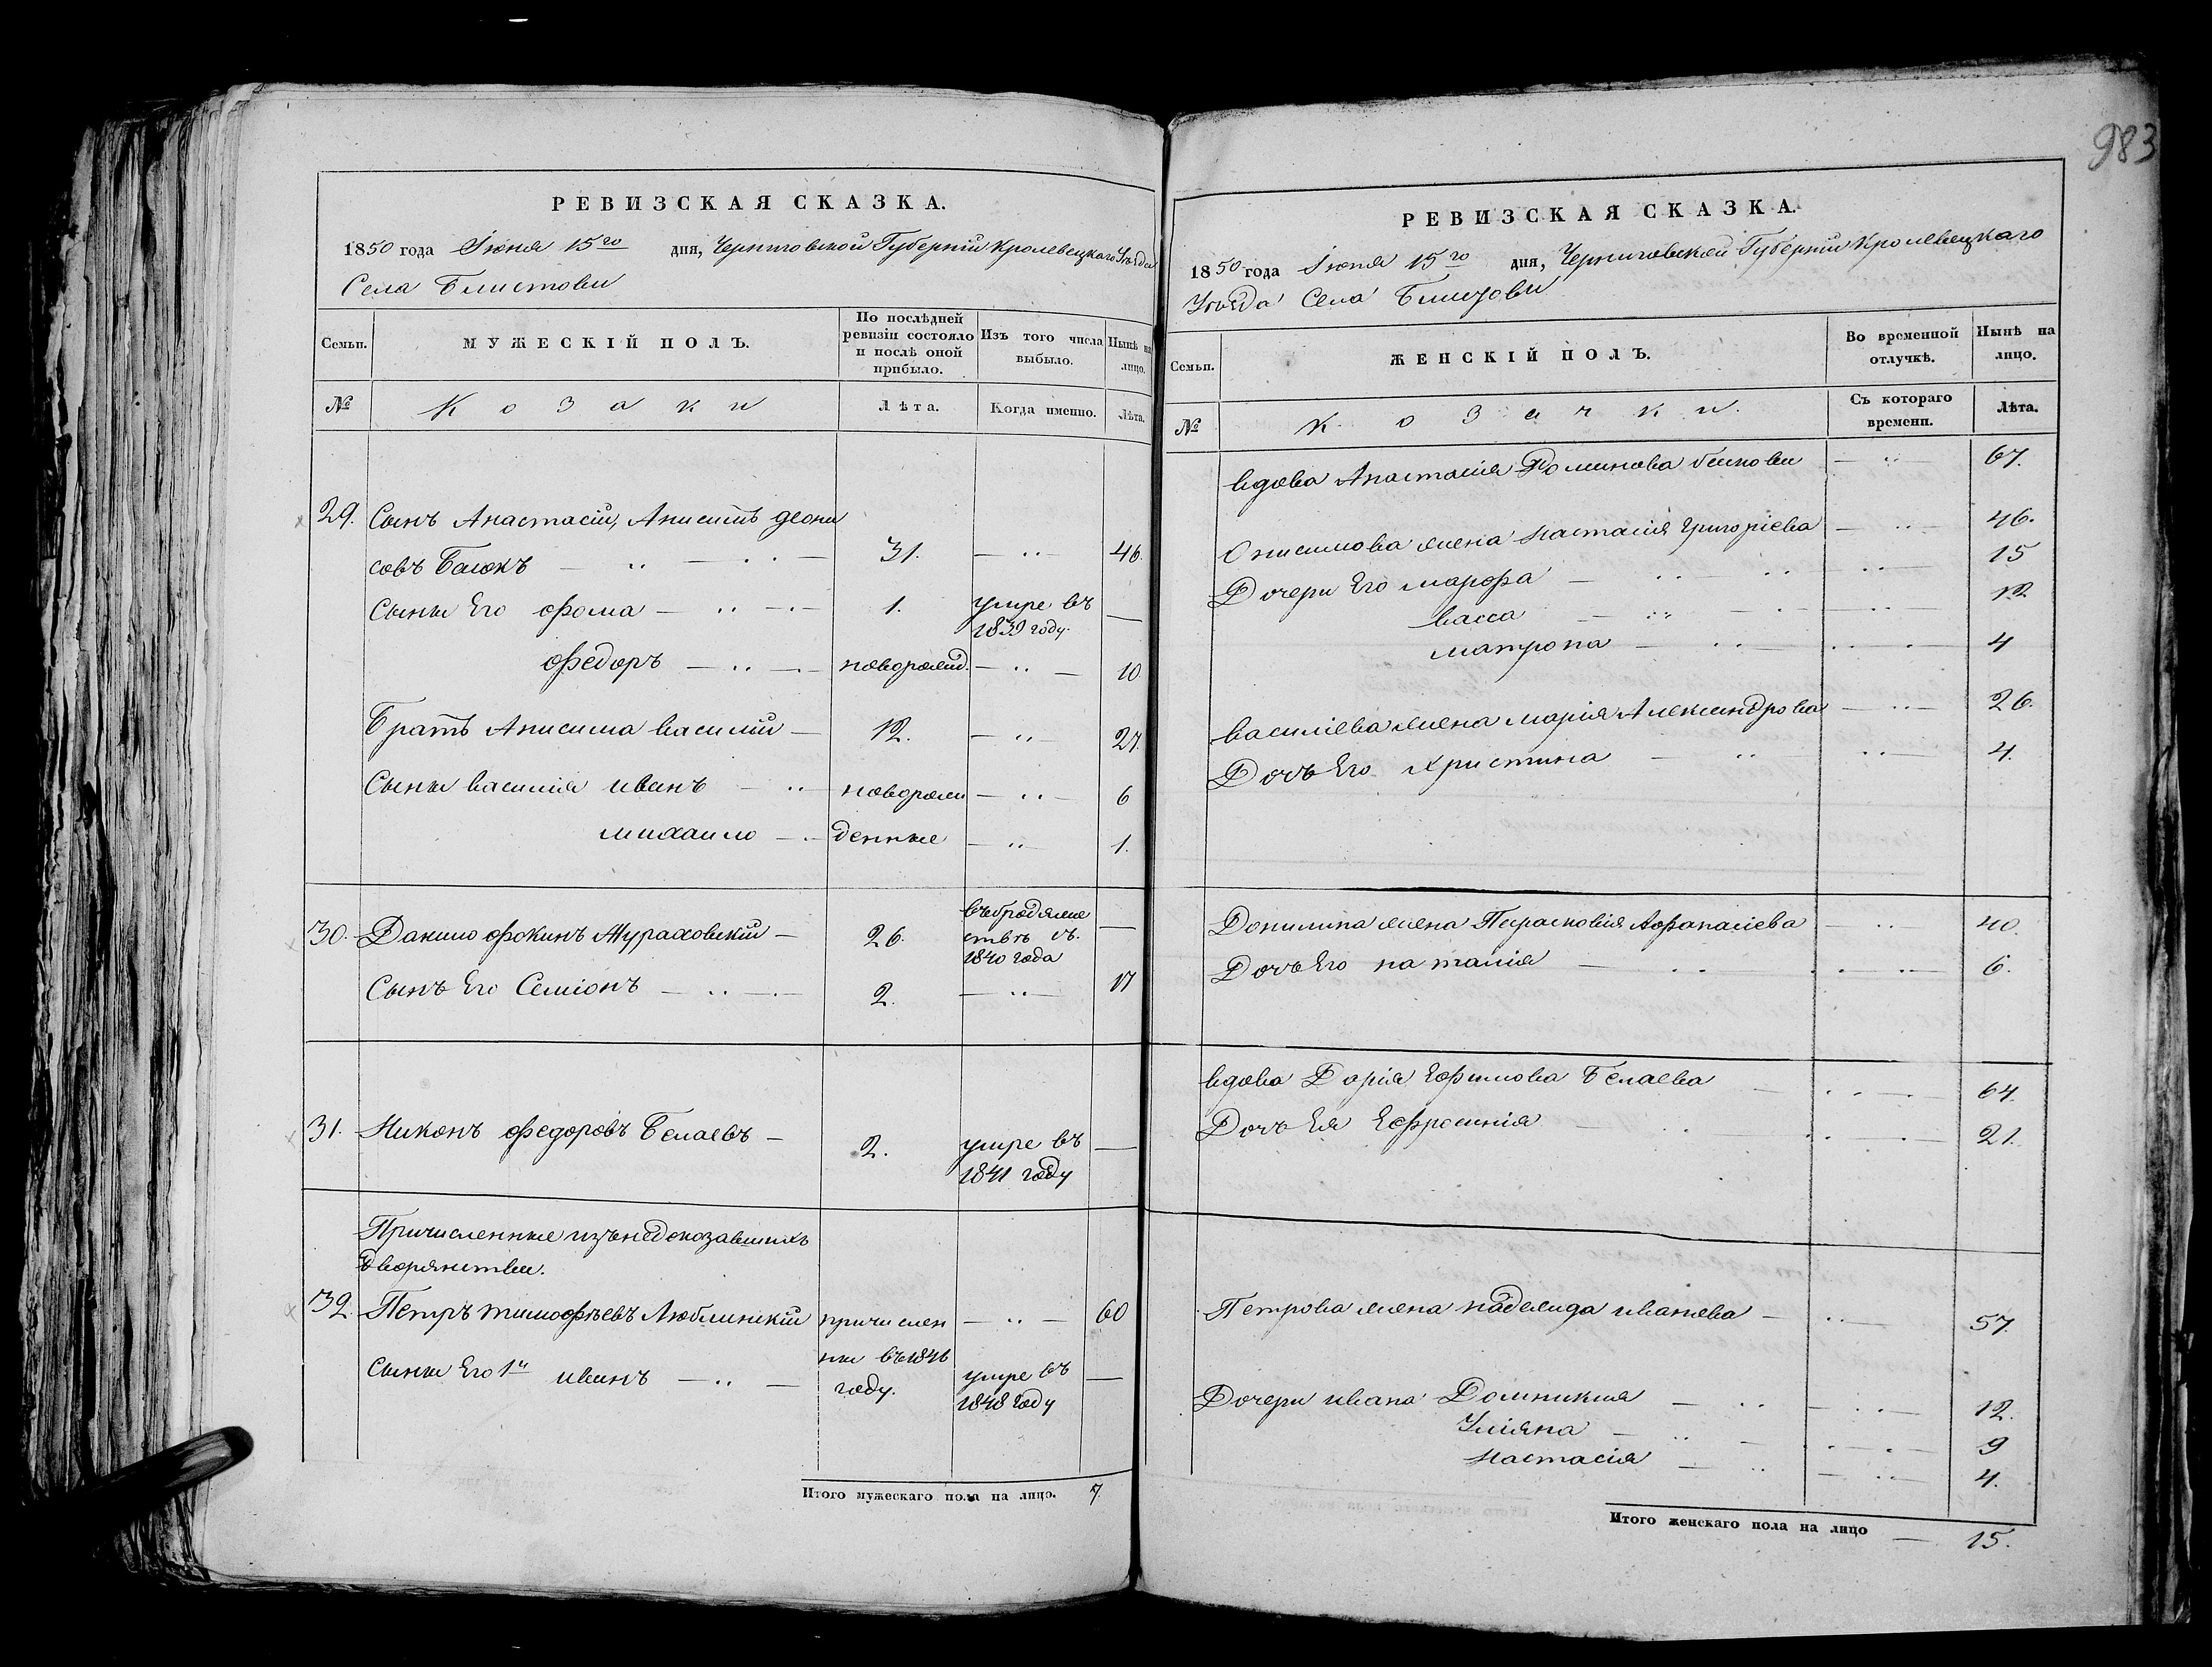 983
РЕВИЗСКАЯ СКАЗКА.
1850 года Іюня 15го дня, Черниговской Губерніи Кролевецкаго Уѣзда
Села Блистови
Семьи. МУЖЕСКІЙ ПОЛЪ. По послѣдней ревизіи состояло и послѣ оной прибыло. Изъ того числа выбыло. Нынѣ на лицо.
№ Козаки Лѣта. Когда именно. Лѣта.
29. Сынъ Анастасіи, Анисимъ деони
совъ Балюкъ 31. 46.
Сыны Его Фома 1. умре въ 1839 году.
Федоръ новорожд. 10
Братъ Анисима василій 12. 27.
Сыны василія иванъ новорож 6
михаило денные 1.
30. Данило Фокинъ Мураховскій 26. въ бродяже ствѣ съ 1840 года
Сынъ Его Семіонъ 2. 17
31. Никонъ Федоровъ Белаевъ 2. умре въ 1841 году
Причисленные изъ недоказавшихъ
дворянства.
32. Петръ тимофѣевъ Люблинскій причислен 60
ны въ 1846
Сыны Его 1й иванъ году. умре въ 1848 году
Итого мужескаго пола на лицо. 7.
РЕВИЗСКАЯ СКАЗКА.
1850 года Іюня 15го дня, Черниговской Губерніи Кролевецкаго
Уѣзда Села Блистови
Семьи. ЖЕНСКІЙ ПОЛЪ. Во временной отлучкѣ. Нынѣ на лицо.
№ Козачки. Съ котораго времени. Лѣта.
вдова Анастасія 67.
Онисимова жена Настасія Григоріева 46.
Дочери Его марфа 15
васса 12
матрона 4
василіева жена марія Александрова 26.
Дочь Его Христина 4.
Данилина жена Парасковія Афанасіева 40.
Дочь Его наталія 6.
вдова Дарія Ефимова Белаева 64.
Дочь Ея Ефросинія 21.
Петрова жена надежда иванова 57.
Дочери ивана Домникия 12.
Уліяна 9
Настасія 4.
Итого женскаго пола на лицо 15.